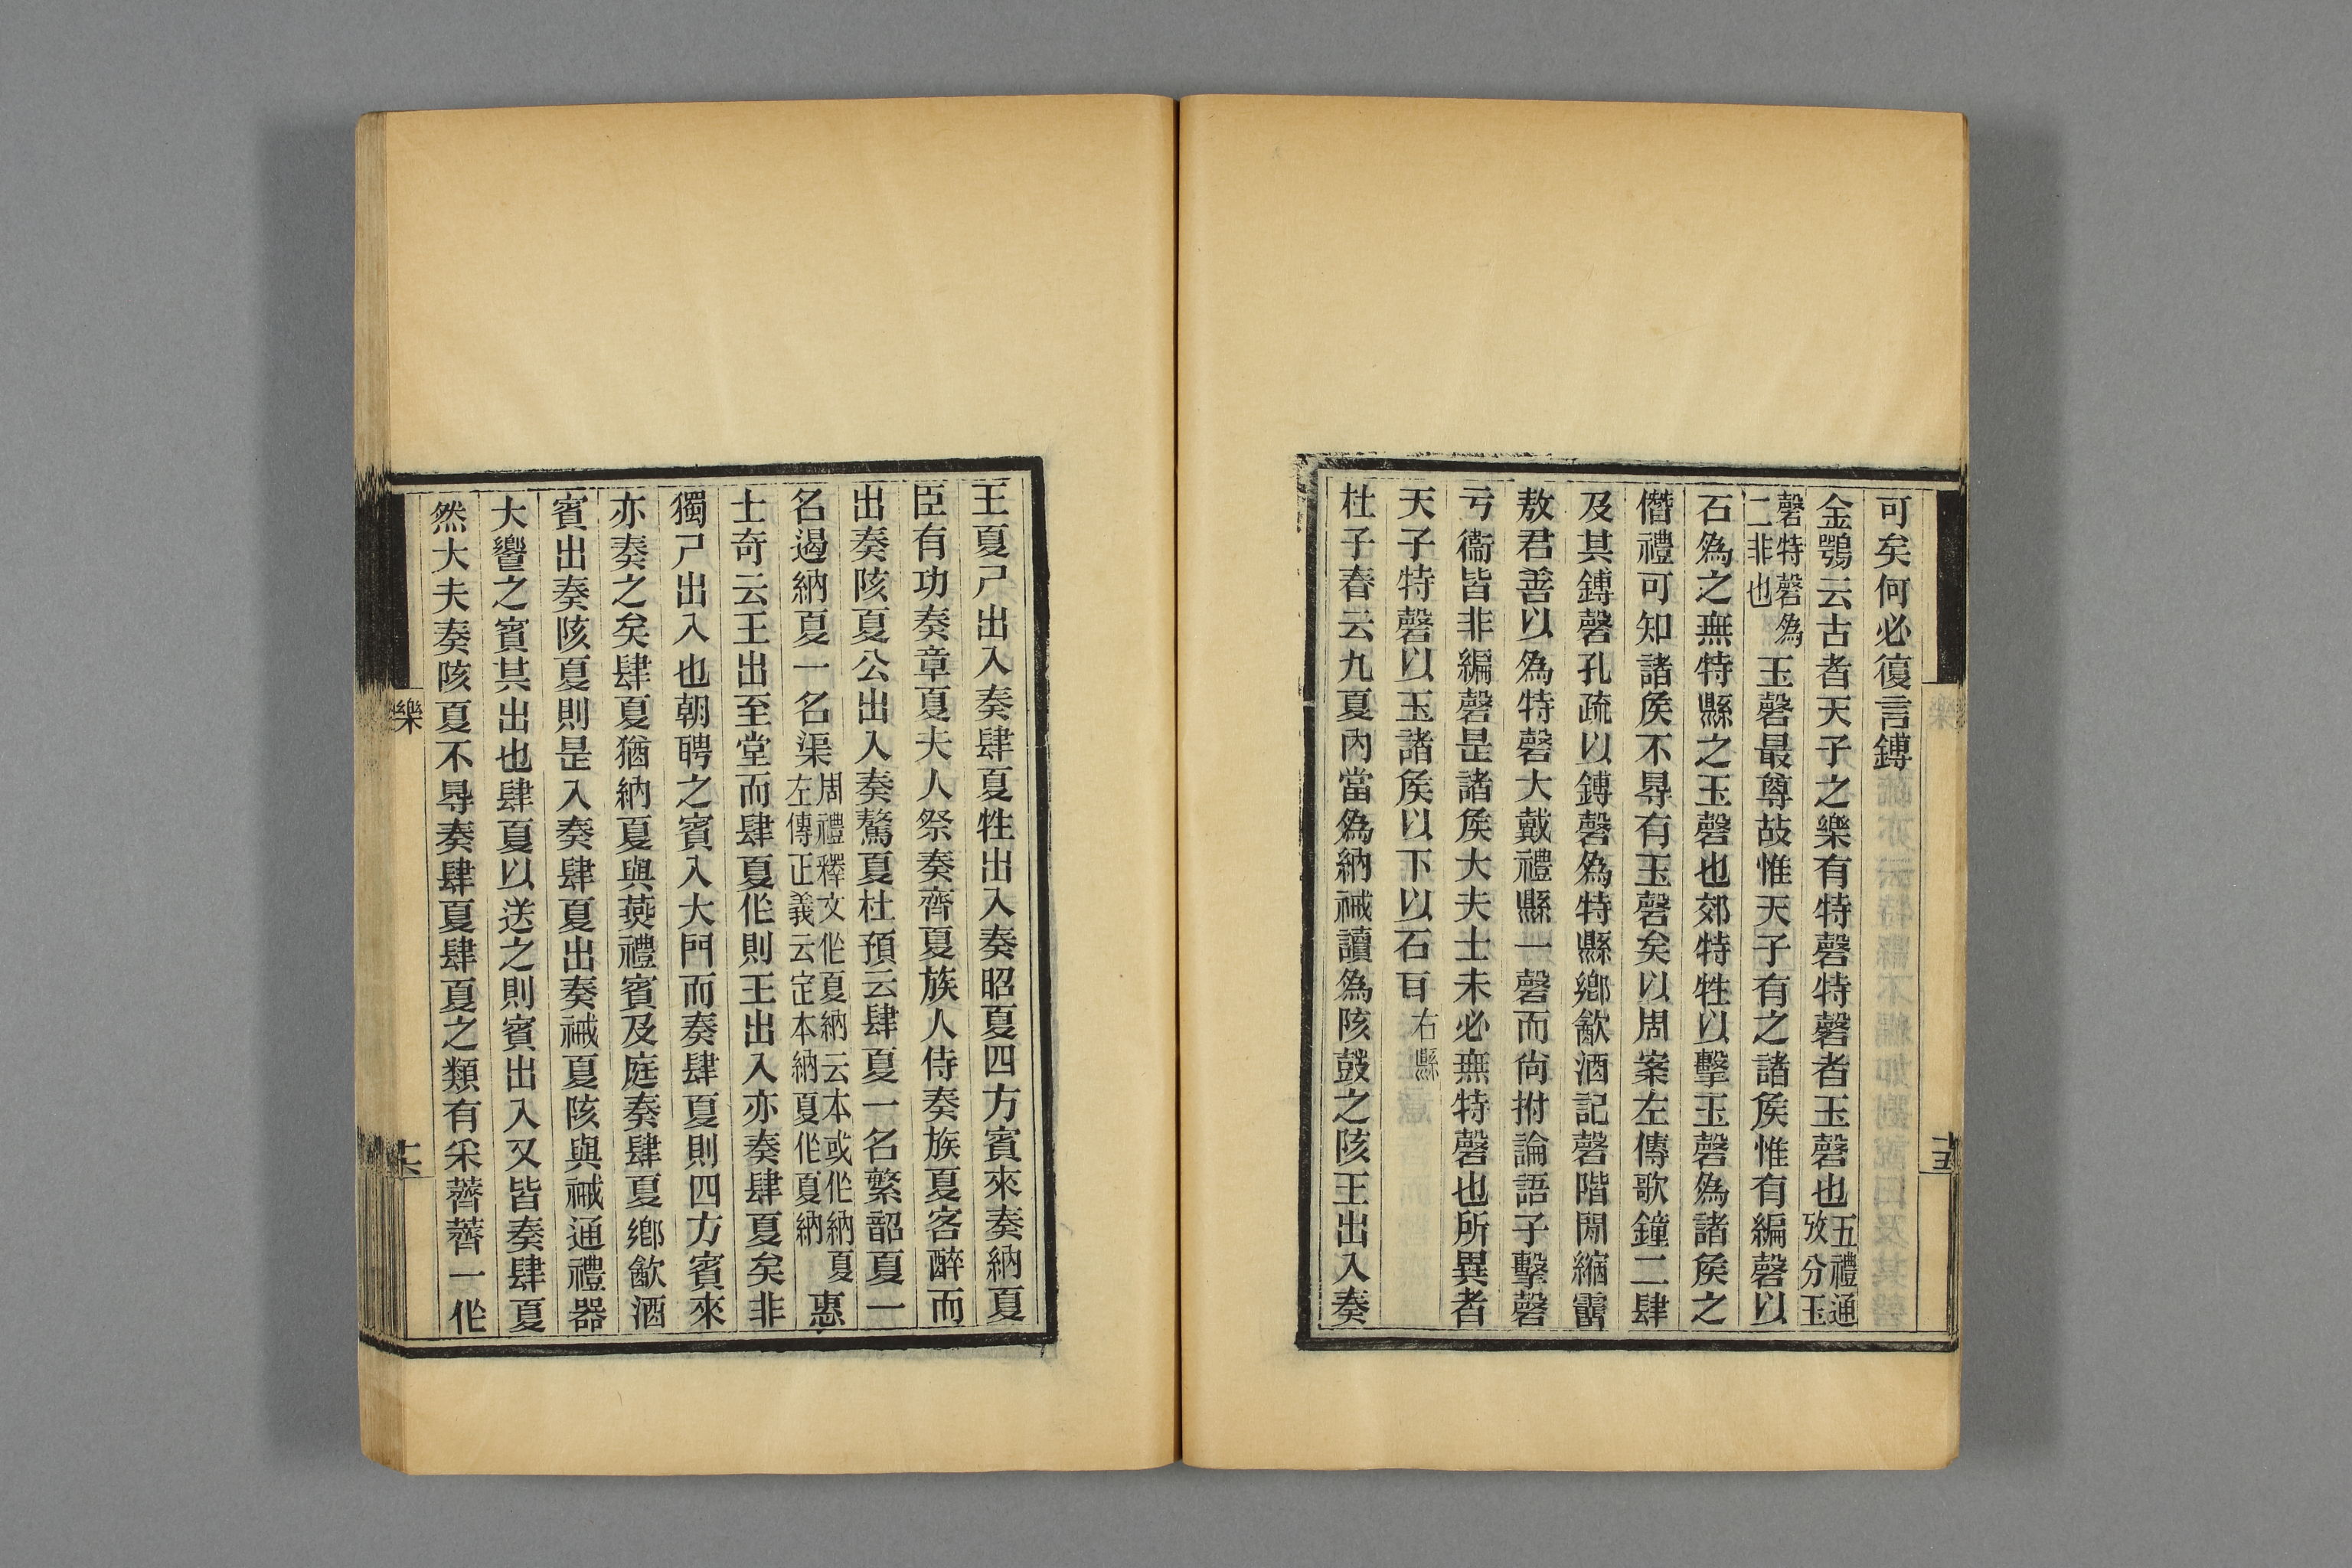 可矣何必復言鎛
金鶚云古者天子之樂有特磬特磬者玉磬也五禮通攷分玉
磬特磬為二非也玉磬最尊故惟天子有之諸矦惟有編磬以
石為之無特縣之玉磬也郊特牲以擊玉磬為諸矦之
僭禮可知諸矦不㝵有玉磬矣以周案左傳歌鐘二肆
及其鎛磬孔疏以鎛磬為特縣鄉飲酒記磬階閒縮霤
敖君善以為特磬大戴禮縣一磬而尙拊論語子擊磬
亏衞皆非編磬是諸矦大夫士未必無特磬也所異者
天子特磬以玉諸矦以下以石耳右縣
杜子春云九夏內當為納祴讀為陔鼓之陔王出入奏
王夏尸出入奏肆夏牲出入奏昭夏四方賓來奏納夏
臣有功奏章夏夫人祭奏齊夏族人侍奏族夏客醉而
出奏陔夏公出入奏驁夏杜預云肆夏一名繁韶夏一
名遏納夏一名渠周禮釋文作夏納云本或作納夏左傳正義云定本納夏作夏納惠
士奇云王出至堂而肆夏作則王出入亦奏肆夏矣非
獨尸出入也朝聘之賓入大門而奏肆夏則四方賓來
亦奏之矣肆夏猶納夏與燕禮賓及庭奏肆夏鄉飲酒
賓出奏陔夏則是入奏肆夏出奏祴夏陔與祴通禮器
大響之賓其出也肆夏以送之則賓出入又皆奏肆夏
然大夫奏陔夏不㝵奏肆夏肆夏之類有采薺薺一作
樂
十六
十五